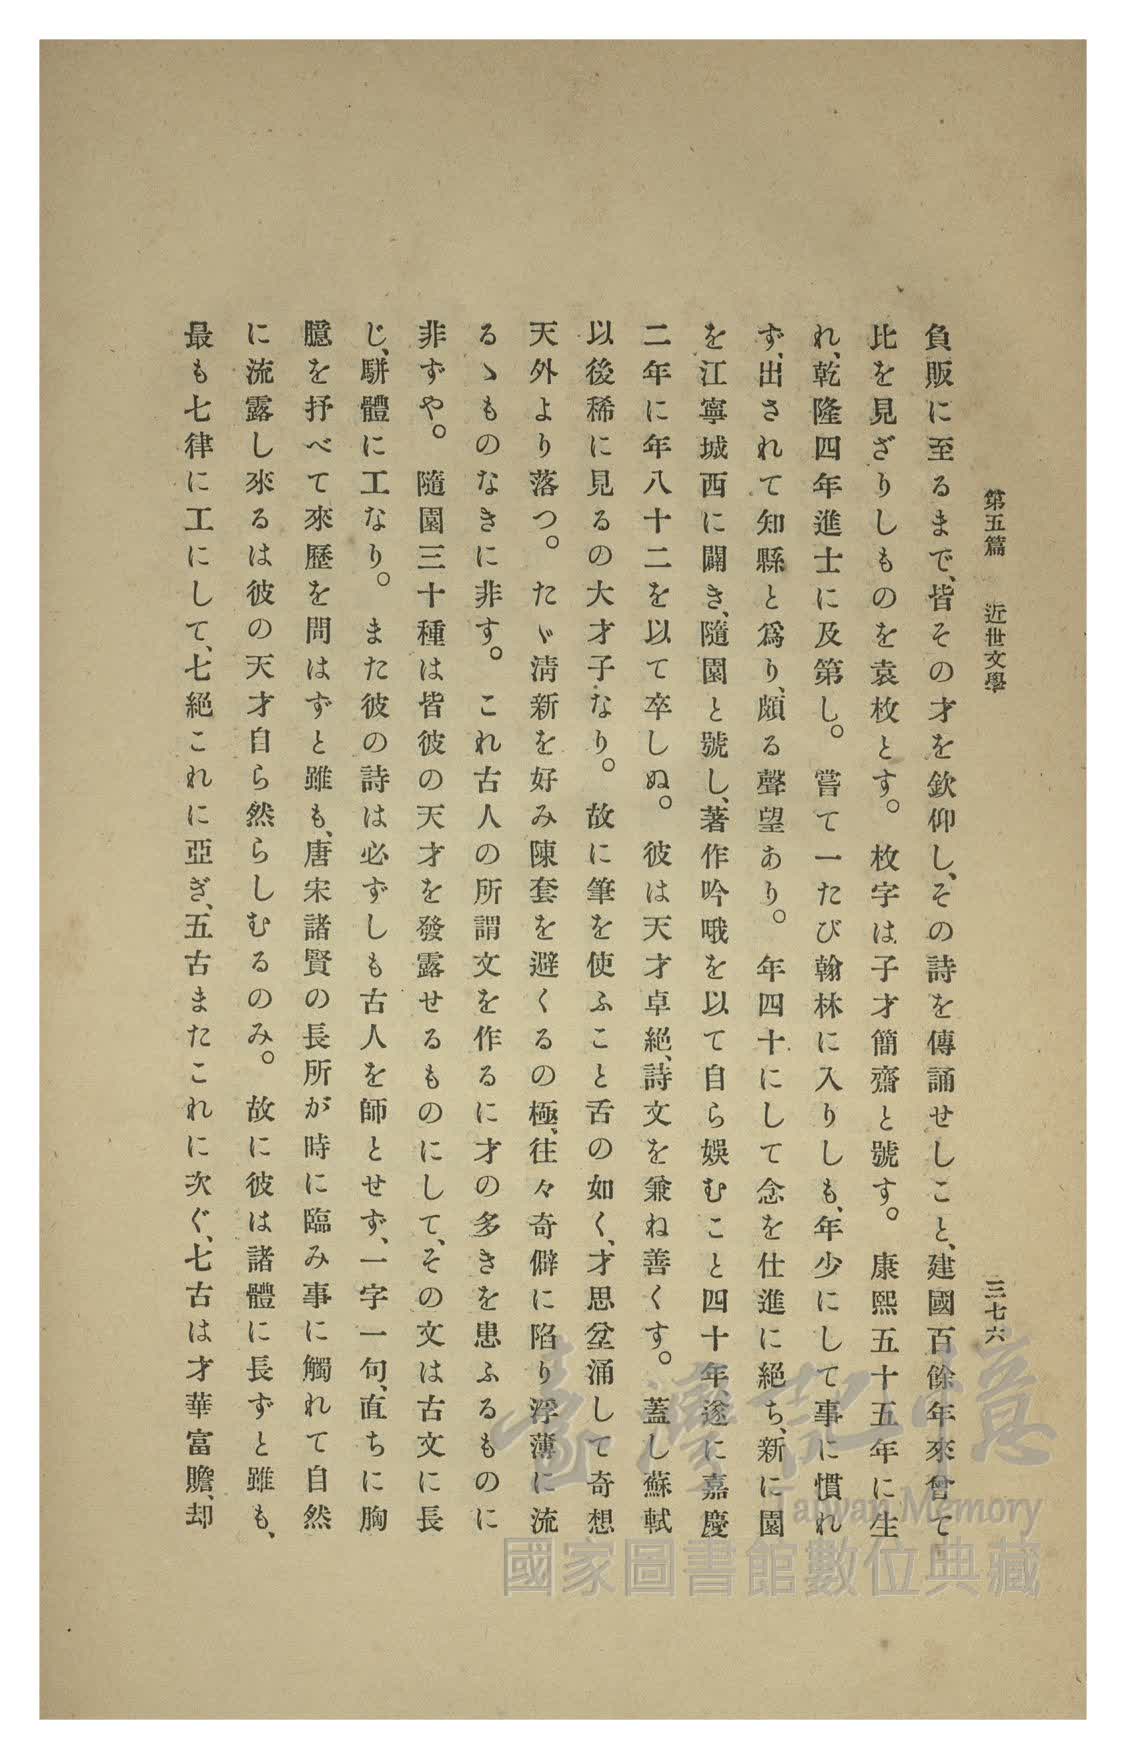 第五篇　近世文學　三七六
負販に至るまで、皆その才を欽仰し、その詩を傳誦せしこと、建國百餘年來曾て
比を見ざりしものを袁枚とす。枚字は子才簡齋と號す。康熙五十五年に生
れ、乾隆四年進士に及第し。嘗て一たび翰林に入りしも、年少にして事に慣れ
ず、出されて知縣と爲り、頗る聲望あり。年四十にして念を仕進に絕ち、新に園
を江寧城西に闢き、隨園と號し、著作吟哦を以て自ら娛むこと四十年、遂に嘉慶
二年に年八十二を以て卒しぬ。彼は天才卓絕、詩文を兼ね善くす。蓋し蘇軾
以後稀に見るの大才子なり。故に筆を使ふこと舌の如く、才思坌涌して奇想
天外より落つ。たゞ淸新を好み陳套を避くるの極、往々奇僻に陷り浮薄に流
るゝものなきに非す。これ古人の所謂文を作るに才の多きを患ふるものに
非ずや。隨園三十種は皆彼の天才を發露せるものにして、その文は古文に長
じ、駢體に工なり。また彼の詩は必ずしも古人を師とせず、一字一句、直ちに胸
臆を抒べて來歷を問はずと雖も、唐宋諸賢の長所が時に臨み事に觸れて自然
に流露し來るは彼の天才自ら然らしむるのみ。故に彼は諸體に長ずと雖も、
最も七律に工にして、七絕これに亞ぎ、五古またこれに次ぐ、七古は才華富贍、却
臺灣記憶
Taiwan Memory
國家圖書館數位典藏